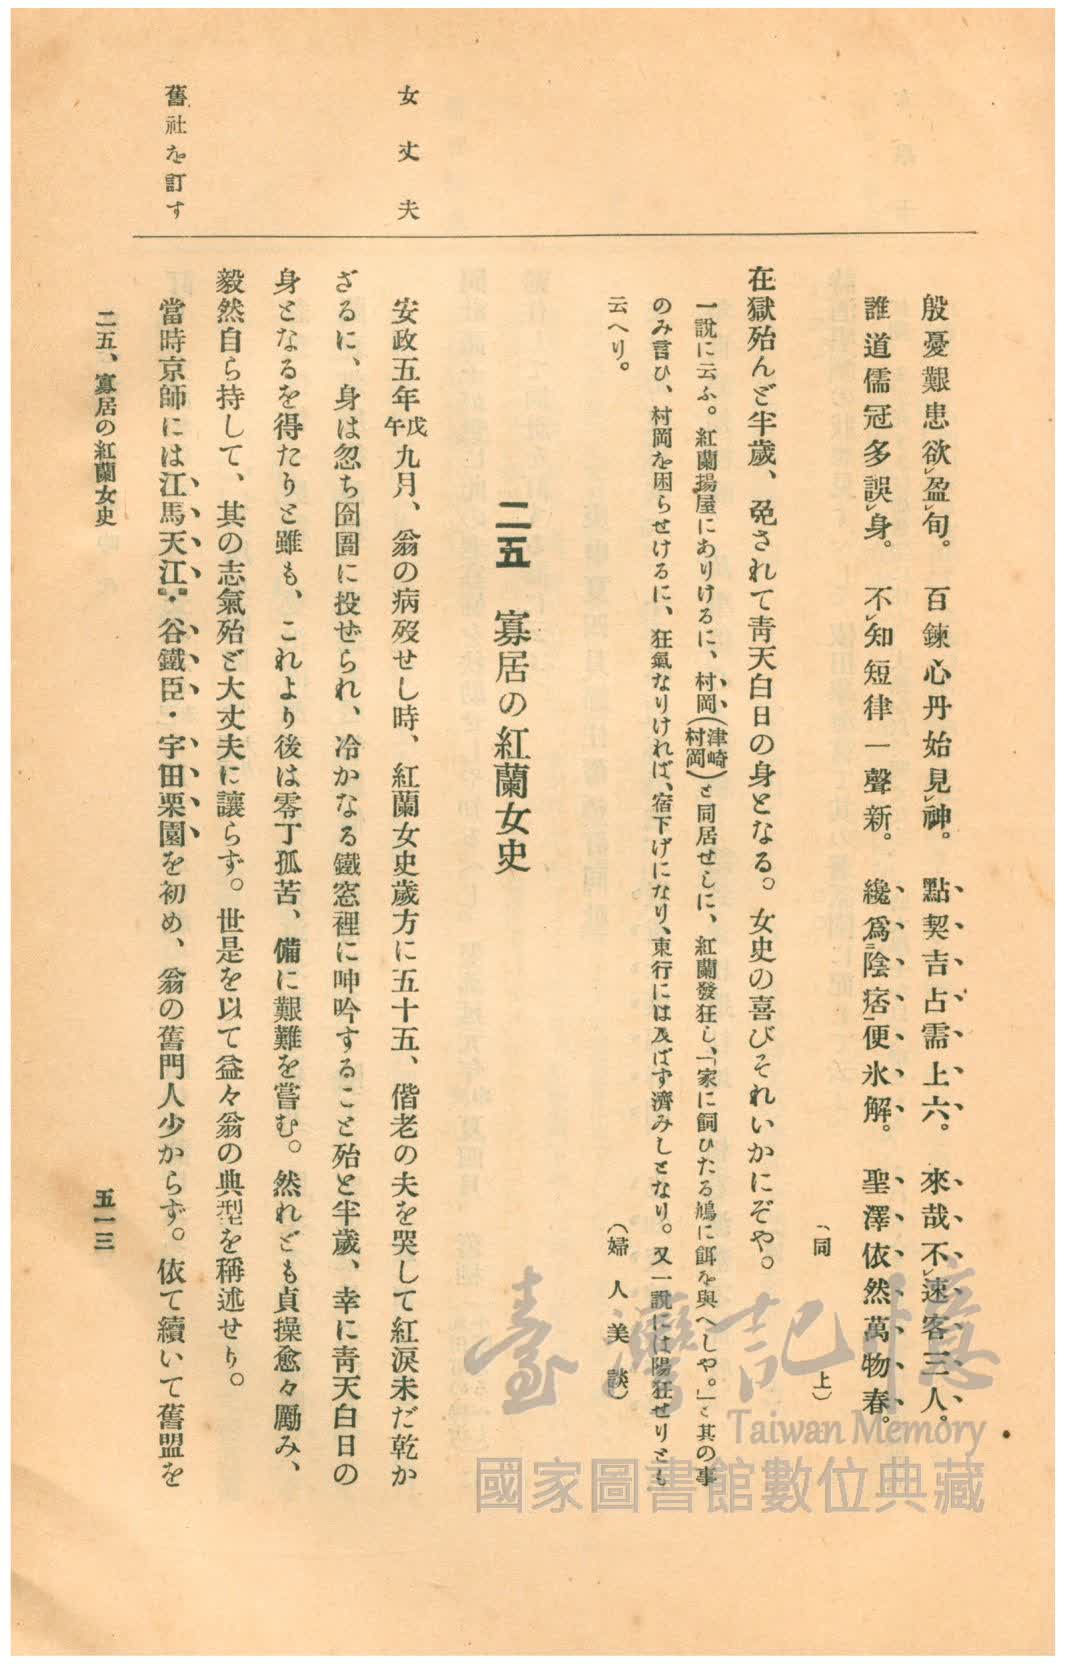 殷憂艱患欲レ盈レ旬。 百鍊心丹始見レ神。 點契吉占需上六。 來哉不レ速客三人。
誰道儒冠多誤レ身。 不レ知短律一聲新。 纔爲二陰痞一便氷解。 聖澤依然萬物春。
（同　上）
在獄殆んど半歲、免されて靑天白日の身となる。女史の喜びそれいかにぞや。
一說に云ふ。紅蘭揚屋にありけるに、村岡（津崎村岡）と同居せしに、紅蘭發狂し、「家に飼ひたる鳩に餌を與へしや。」と其の事
のみ言ひ、村岡を困らせけるに、狂氣なりければ、宿下げになり、東行には及ばず濟みしとなり。又一說には陽狂せりとも
云へり。
（婦人美談）
二五　寡居の紅蘭女史
女丈夫
安政五年戊午九月、翁の病歿せし時、紅蘭女史歲方に五十五、偕老の夫を哭して紅淚未だ乾か
ざるに、身は忽ち囹圄に投ぜられ、冷かなる鐵窓裡に呻吟すること殆と半歲、幸に靑天白日の
身となるを得たりと雖も、これより後は零丁孤苦、備に艱難を嘗む。然れども貞操愈々勵み、
毅然自ら持して、其の志氣殆ど大丈夫に讓らず。世是を以て益々翁の典型を稱述せり。
舊社を訂す
當時京師には江馬天江・谷鐵臣・宇田栗園を初め、翁の舊門人少からず。依て續いて舊盟を
二五、寡居の紅蘭女史
五一三
臺灣記憶
Taiwan Memory
國家圖書館數位典藏